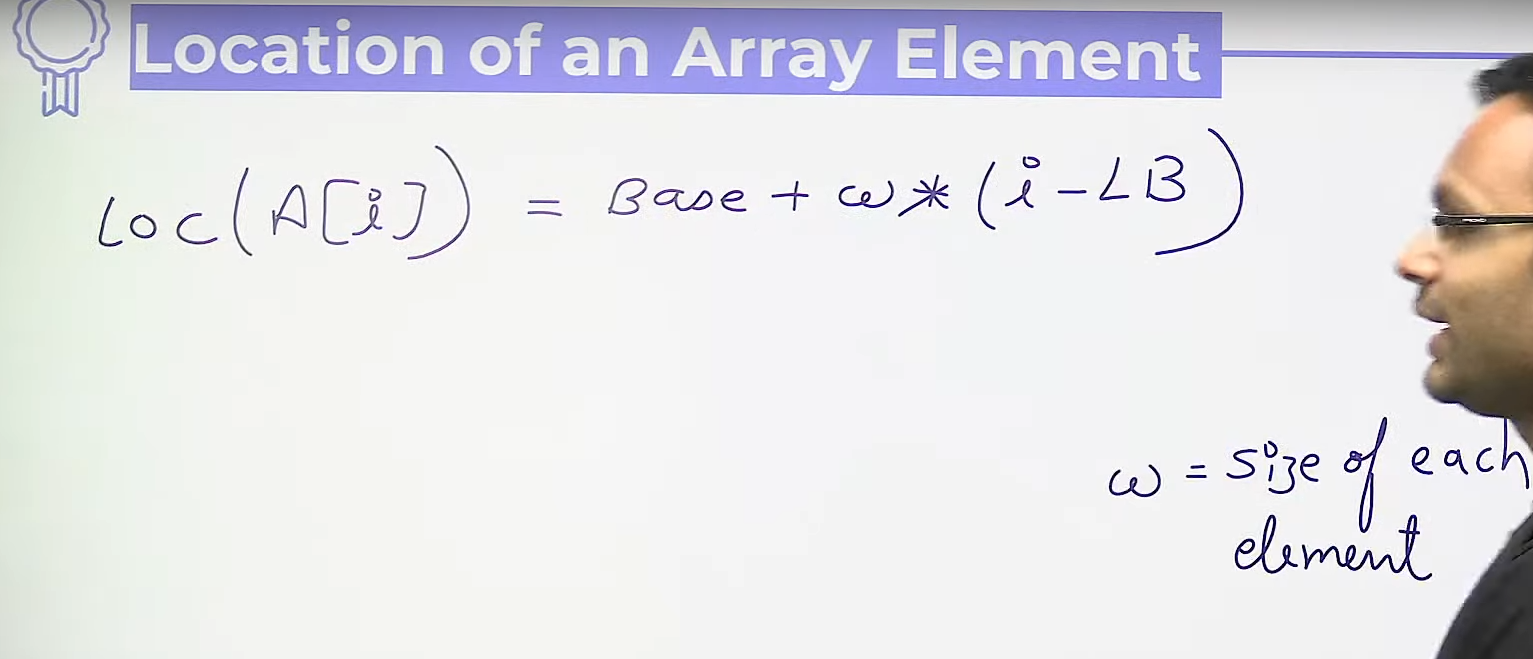 Location of an Array Element
Loc(A[i]) = Base + ω * (i - LB)
ω = size of each
element